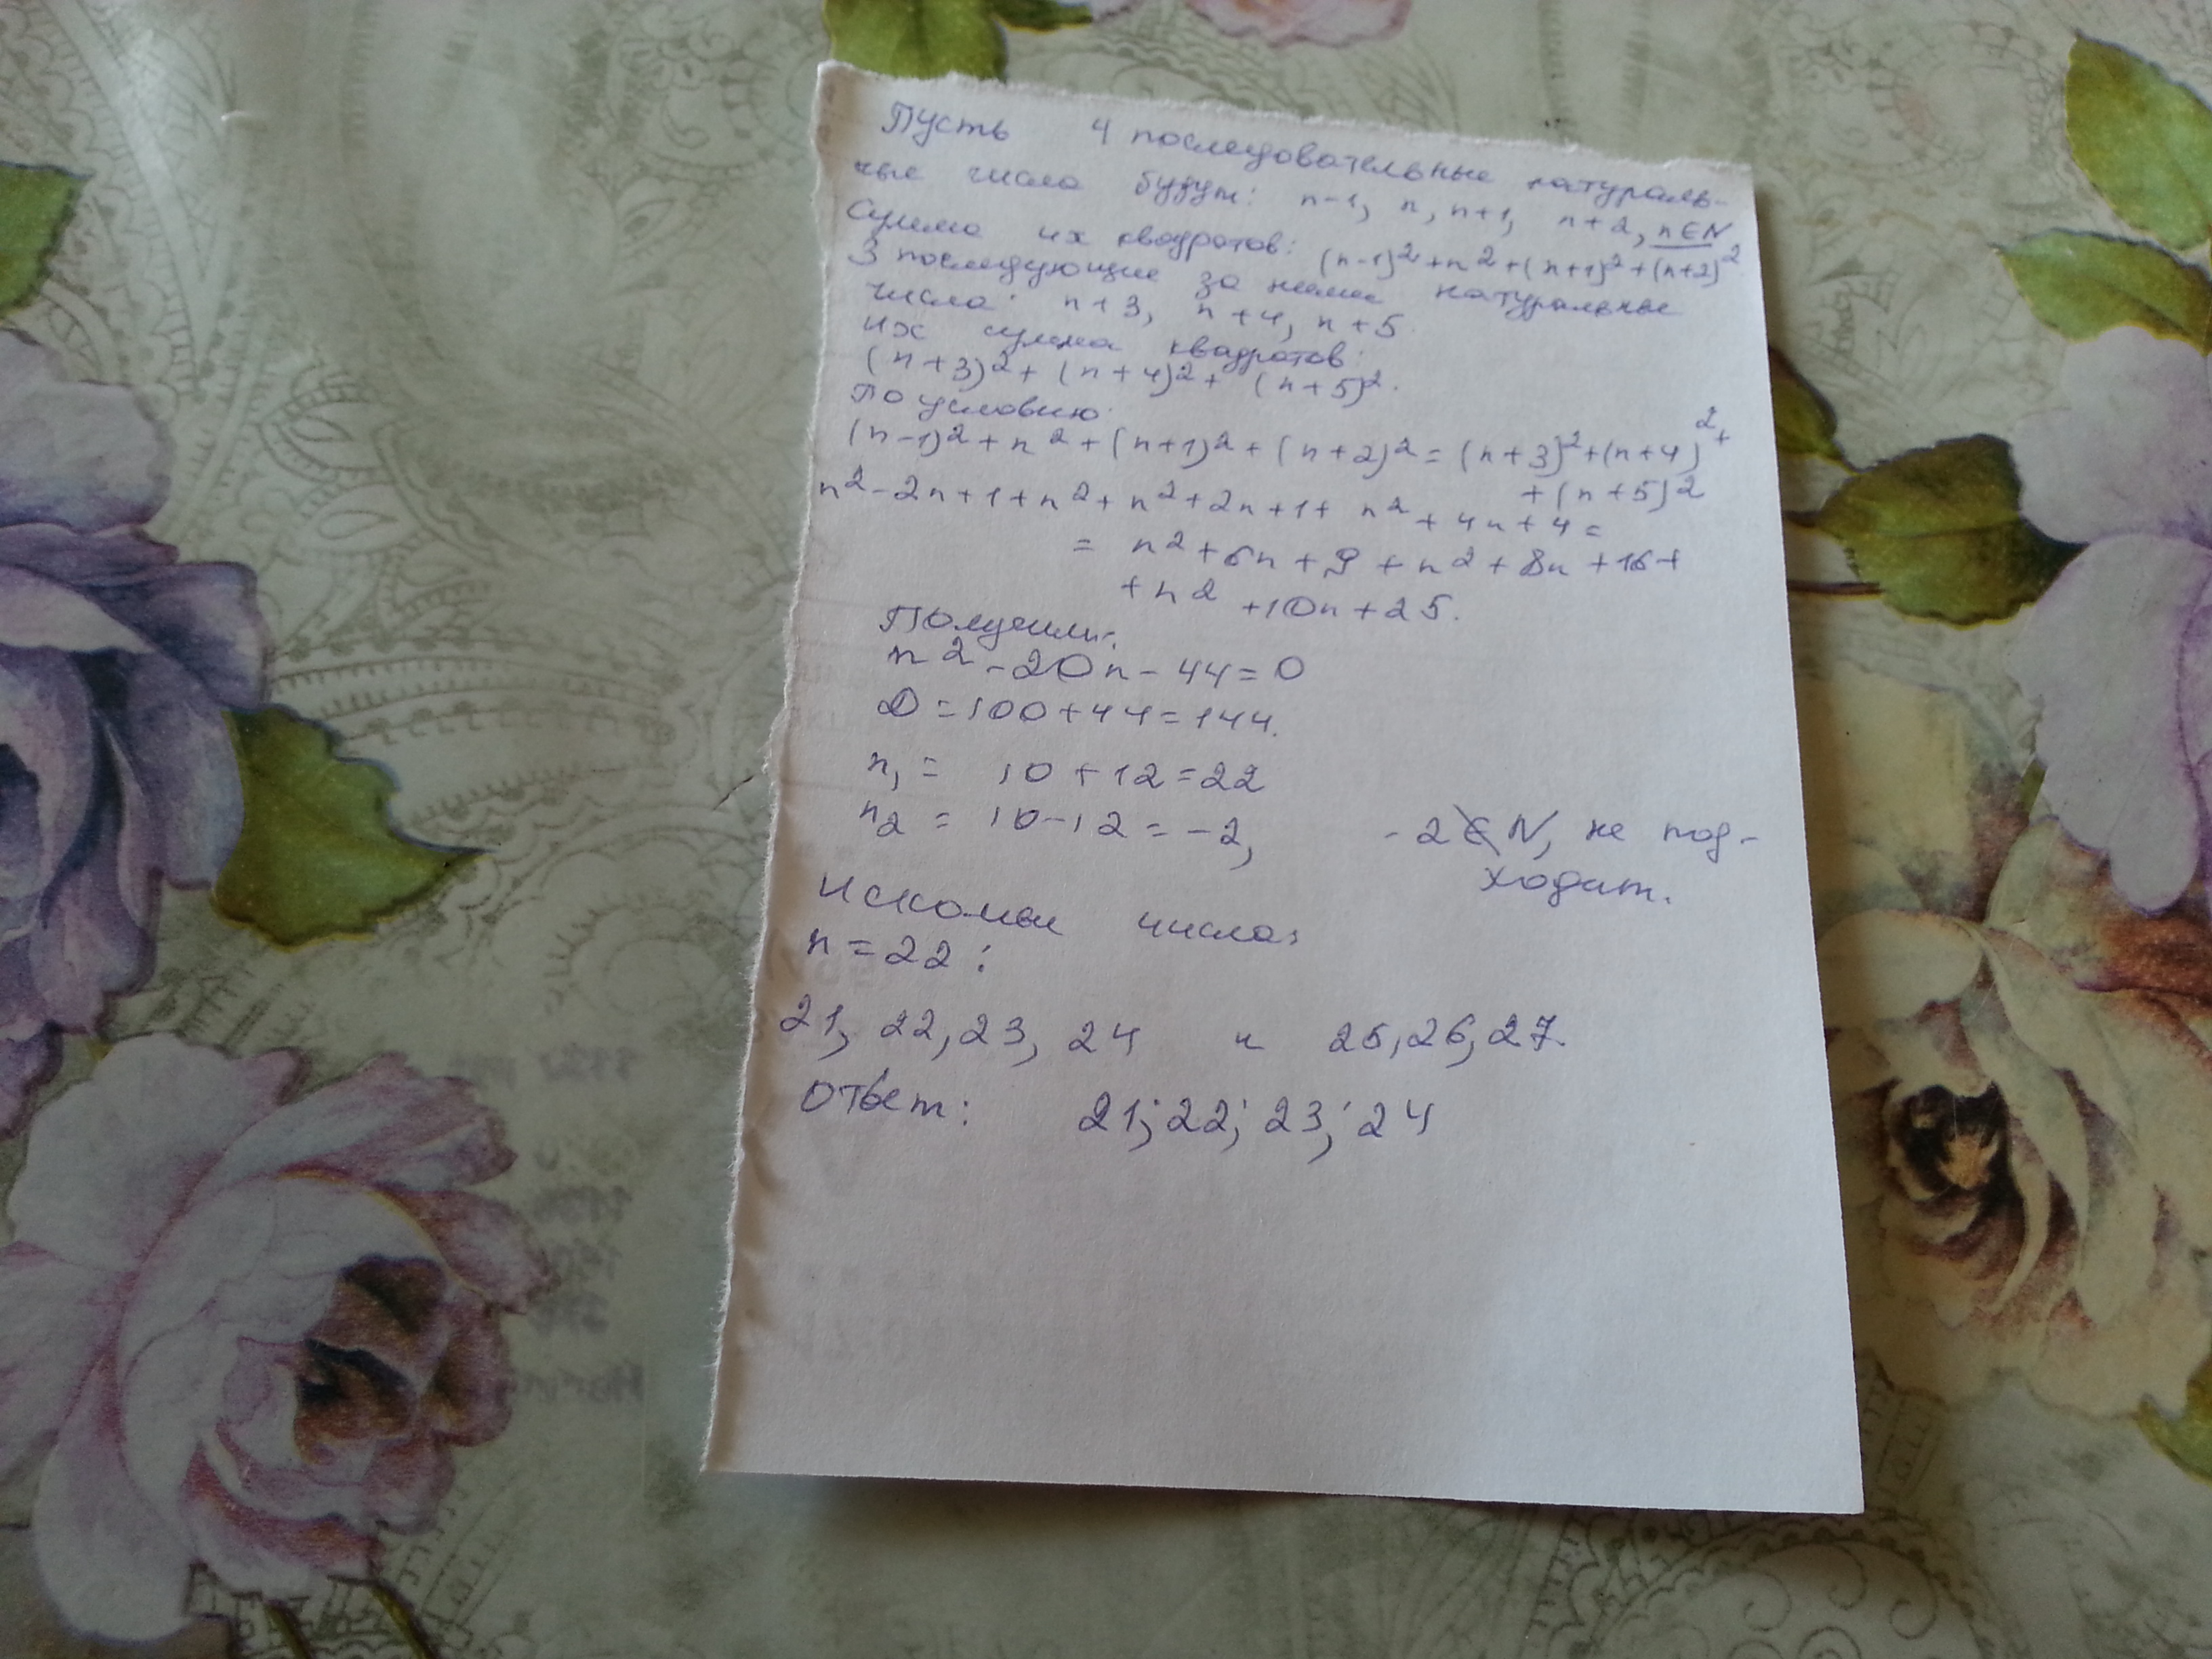 Пусть 4 последовательные натураль-
ные числа будут: n-1, n, n+1, n+2, n∈N
Сумма их квадратов: (n-1)²+n²+(n+1)²+(n+2)²
3 последующие за ними натуральные
числа: n+3, n+4, n+5.
Их сумма квадратов:
(n+3)²+(n+4)²+(n+5)².
По условию:
(n-1)²+n²+(n+1)²+(n+2)²=(n+3)²+(n+4)²+
+(n+5)²
n²-2n+1+n²+n²+2n+1+n²+4n+4=
=n²+6n+9+n²+8n+16+
+n²+10n+25.
Получили:
n²-20n-44=0
D=100+44=144.
n₁=10+12=22
n₂=10-12=-2, -2∉N, не под-
ходит.
Искомые числа:
n=22:
21, 22, 23, 24 и 25, 26, 27.
Ответ: 21; 22; 23; 24